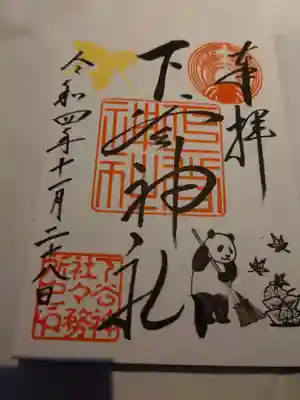 奉拝
下谷神社
下谷
神社
令和四年十一月二十八日
下谷神
社々務
所之印